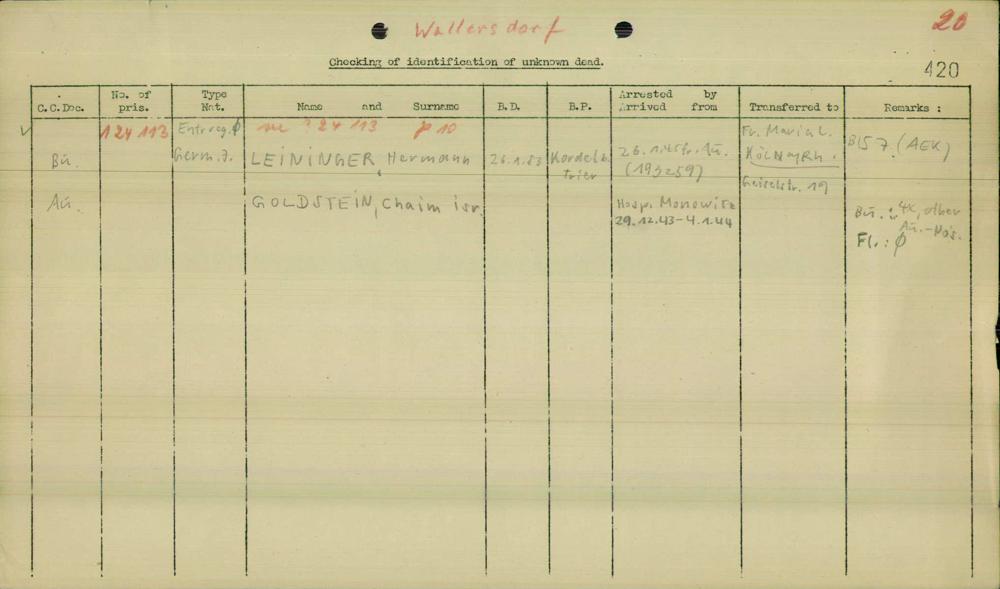 Wallersdorf
20
Checking of identification of unknown dead.
420
C.C.Doc. No. of pris. Type Nat. Name and Surname B.D. B.P. Arrested by Arrived from Transferred to Remarks :
124 113 Entr.reg. Ø 24 113
Bu. Germ. J. LEININGER Hermann 26.1.83 Kordel b. Trier 26.1.45 fr. Au. (193259) Fr. Maria L. Köln a/Rh. Geiselstr. 19 Bl57. (AEK)
Au. GOLDSTEIN, Chaim isr. Hosp. Monowitz 29.12.43-4.1.44 Bu.: 4x, other Au.-No's. Fl.: Ø